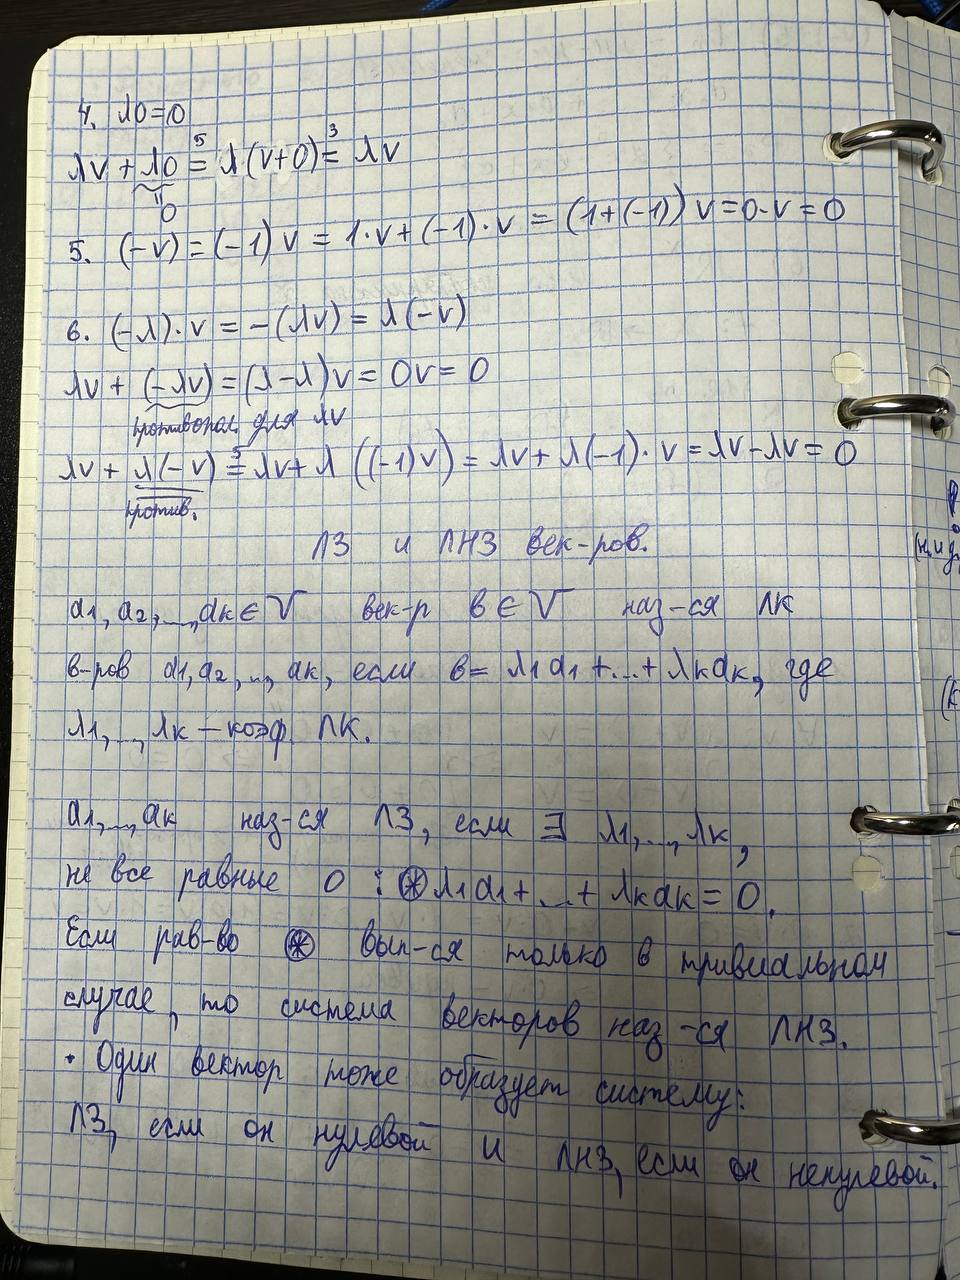 4. λ0=0
λv + λ0 =⁵ λ(v+0) =³ λv
"
0
5. (-v) = (-1)v = 1·v + (-1)·v = (1+(-1))v = 0·v = 0
6. (-λ)·v = -(λv) = λ(-v)
λv + (-λv) = (λ-λ)v = 0v = 0
противопол. для λv
λv + λ(-v) =⁵ λv + λ((-1)v) = λv + λ(-1)·v = λv - λv = 0
против.
ЛЗ и ЛНЗ век-ров.
a1, a2, ..., aк ∈ V век-р в ∈ V наз-ся ЛК
в-ров a1, a2, .., aк, если в = λ1a1 + ... + λкaк, где
λ1, ..., λк – коэф. ЛК.
a1, ..., aк наз-ся ЛЗ, если ∃ λ1, ..., λк,
не все равные 0 : ⊛ λ1a1 + ... + λкaк = 0.
Если рав-во ⊛ вып-ся только в тривиальном
случае, то система векторов наз-ся ЛНЗ.
· Один вектор тоже образует систему:
ЛЗ, если он нулевой и ЛНЗ, если он ненулевой.